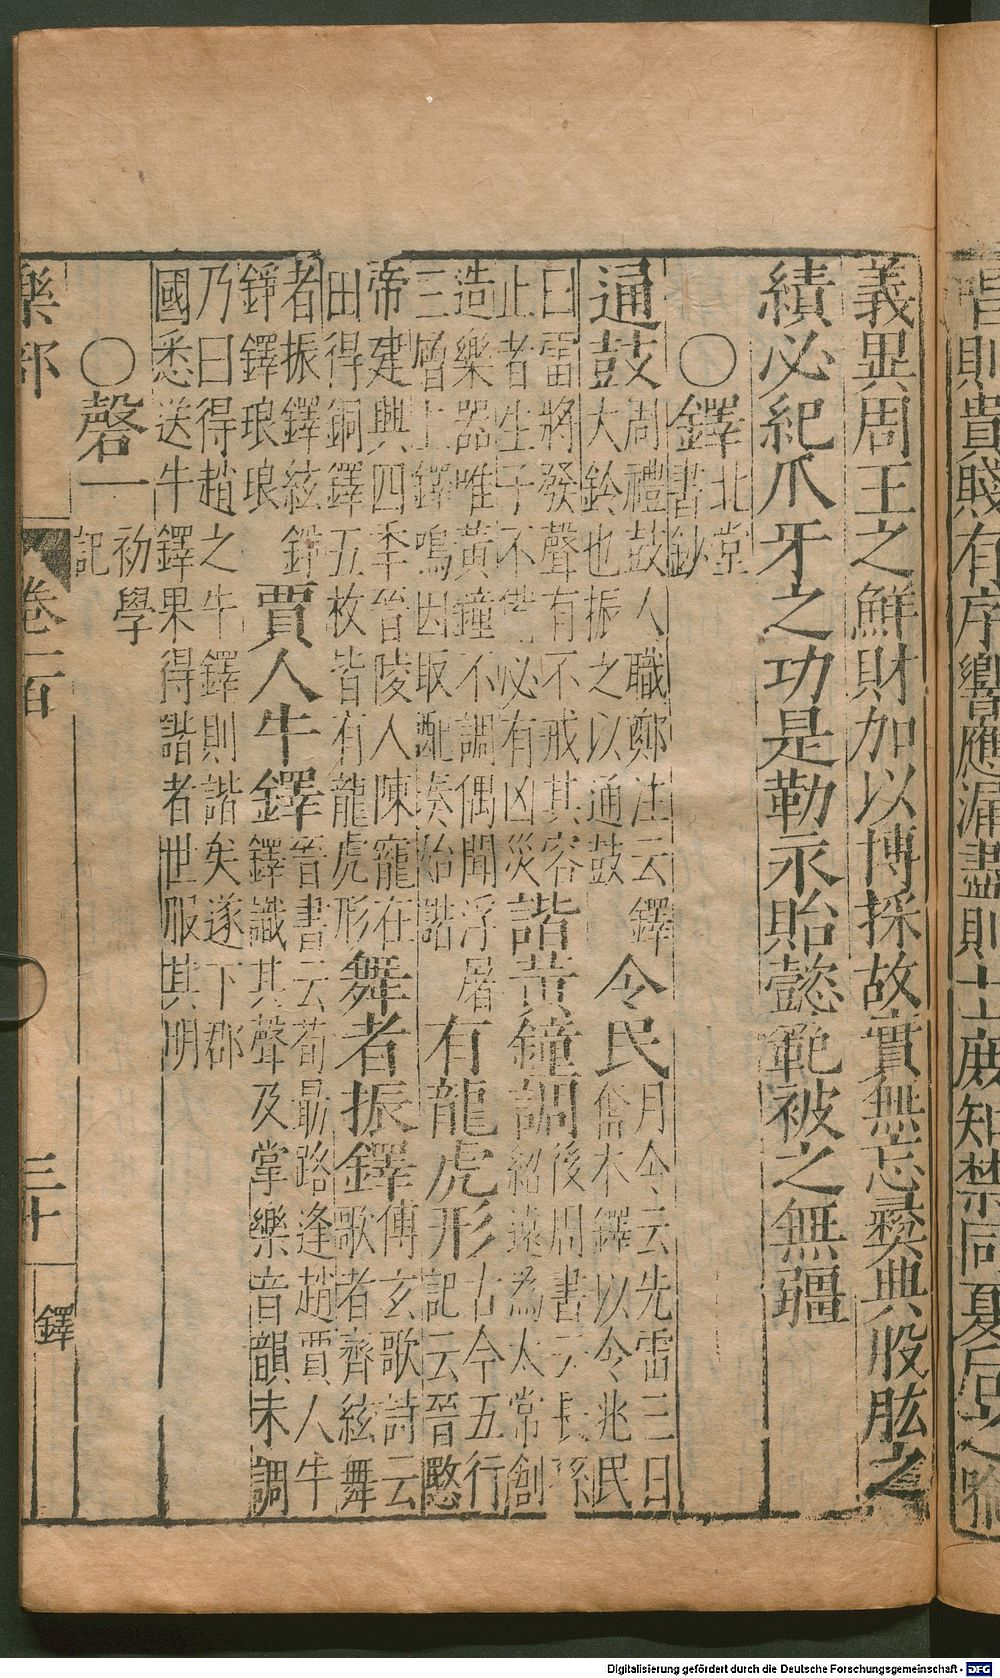 則貴賤有序響應漏盡則士庶知禁同夏后之
義異周王之鮮財加以博採故實無忘彛典股肱之
績必紀爪牙之功是勒永貽懿範被之無疆
○鐸
北堂
書鈔
通鼓
周禮鼓人職鄭注云鐸
大鈴也振之以通鼓
令民
月令云先雷三日
奮木鐸以令兆民
曰雷將發聲有不戒其容
止者生子不備必有凶災
諧黃鐘調
後周書云長孫
紹遠為太常創
造樂器唯黃鐘不調偶聞浮屠
三層上鐸鳴因取配奏始諧
有龍虎形
古今五行
記云晉愍
帝建興四年晉陵人陳寵在
田得銅鐸五枚皆有龍虎形
舞者振鐸
傅玄歌詩云
歌者齊絃舞
者振鐸絃鏗
錚鐸琅琅
賈人牛鐸
晉書云荀勗路逢趙賈人牛
鐸識其聲及掌樂音韻未調
乃曰得趙之牛鐸則諧矣遂下郡
國悉送牛鐸果得諧者世服其明
○磬一
初學
記
樂部 卷一百 三十 鐸
Digitalisierung gefördert durch die Deutsche Forschungsgemeinschaft - DFG